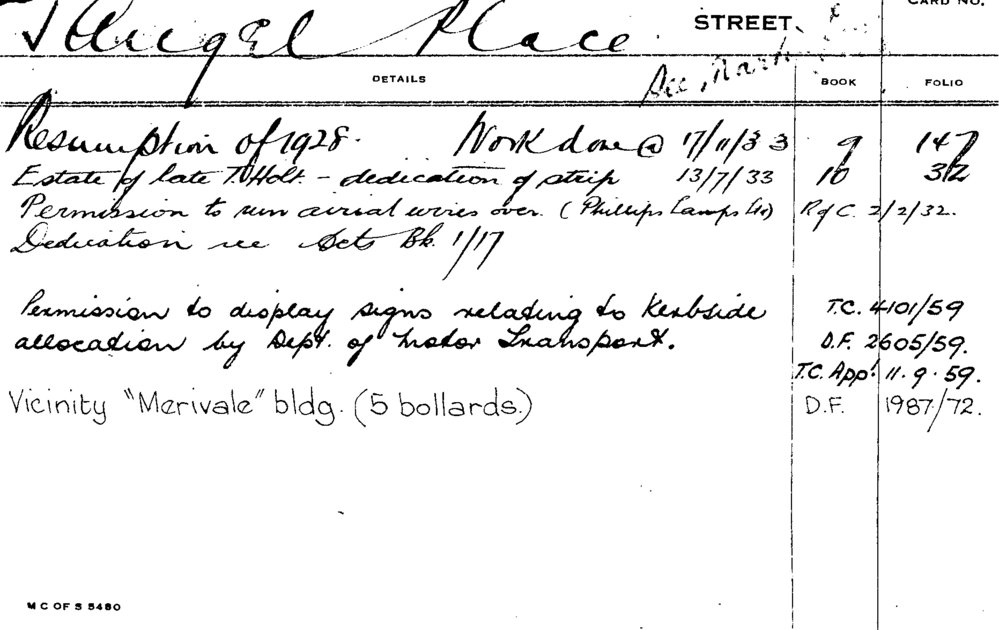 Place STREET
CARD NO.
See
DETAILS BOOK FOLIO
Resumption of 1928. Work done @ 17/11/33 9 147
Estate of late T. Holt. - dedication of strip 13/7/33 10 312
Permission to run aerial wires over. (Phillips Lamps Ltd) R of C. 2/2/32.
Dedication see Sets Bk. 1/17
Permission to display signs relating to Kerbside T.C. 4101/59
allocation by Dept. of Motor Transport. D.F. 2605/59.
T.C. App! 11.9.59.
Vicinity "Merivale" bldg. (5 bollards.) D.F. 1987/72.
M C OF S 5480